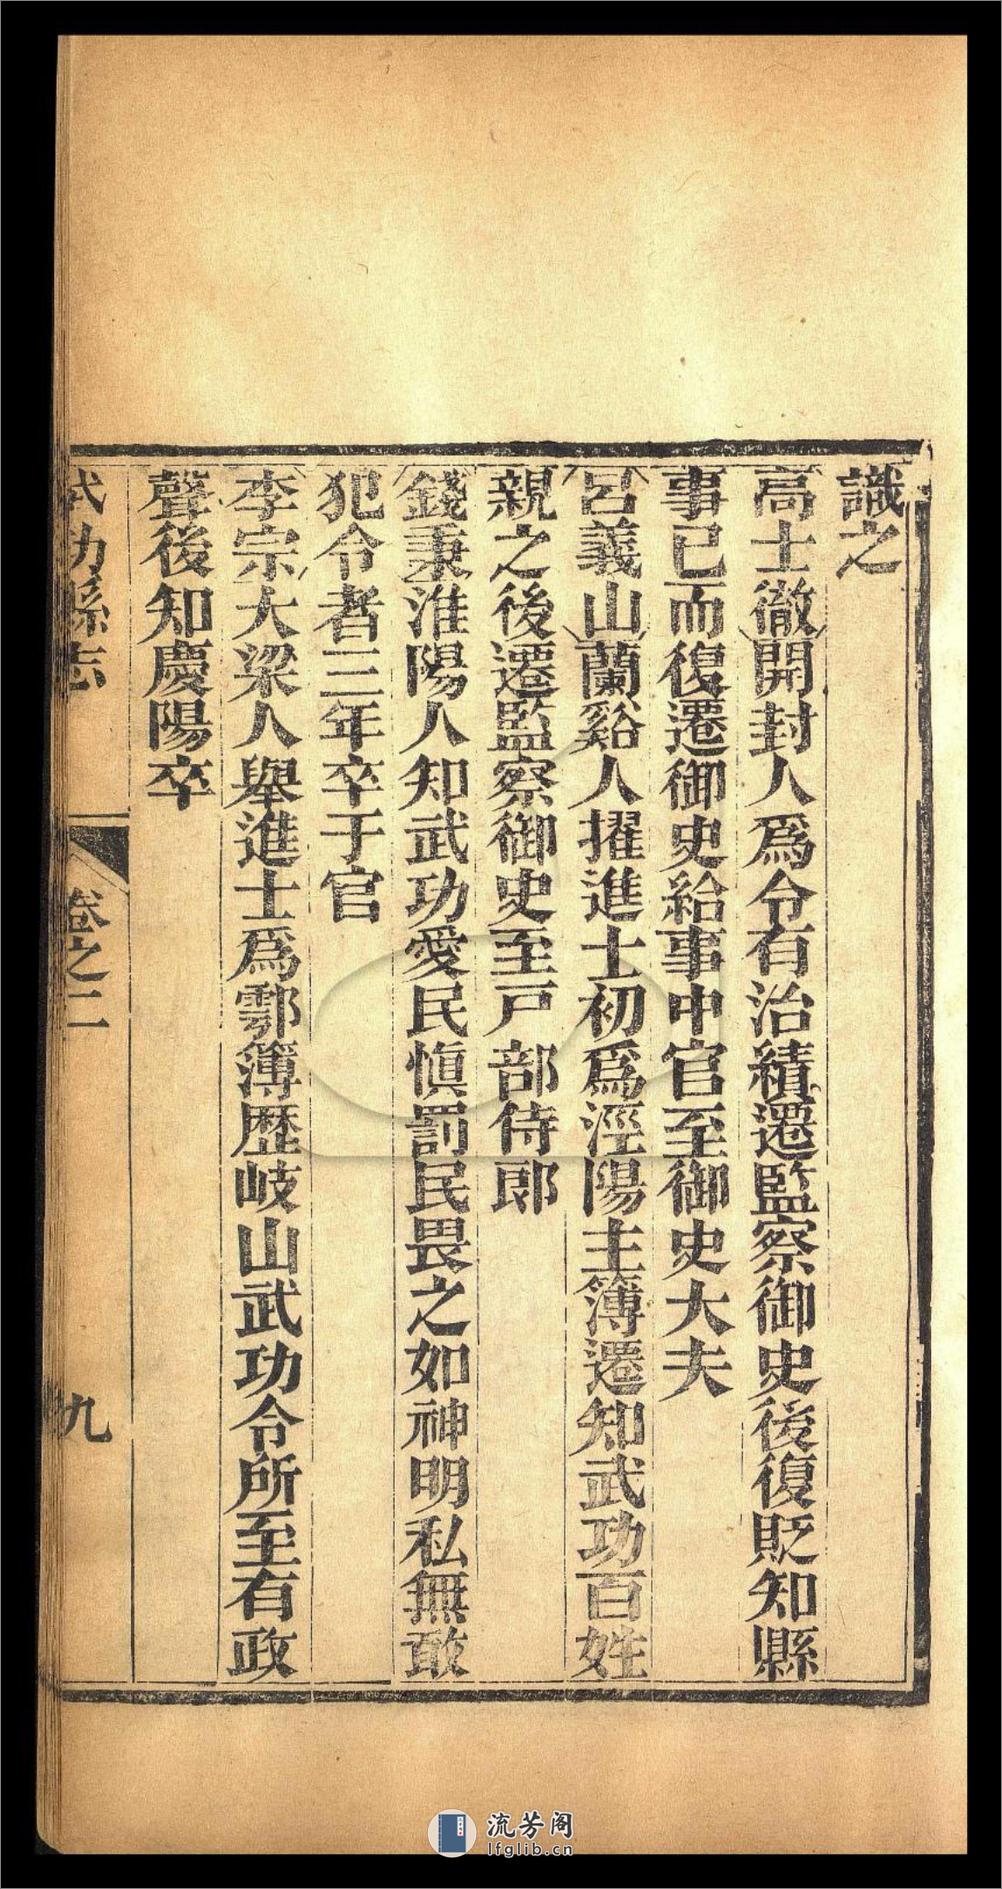 識之
高士徹開封人爲令有治績遷監察御史後復貶知縣
事已而復遷御史給事中官至御史大夫
呂義山蘭谿人擢進士初爲涇陽主簿遷知武功百姓
親之後遷監察御史至戸部侍郎
錢秉淮陽人知武功愛民愼罰民畏之如神明私無敢
犯令者三年卒于官
李宗大梁人舉進士爲鄠簿歷岐山武功令所至有政
聲後知慶陽卒
武功縣志
卷之二
九
流芳阁
lfglib.cn